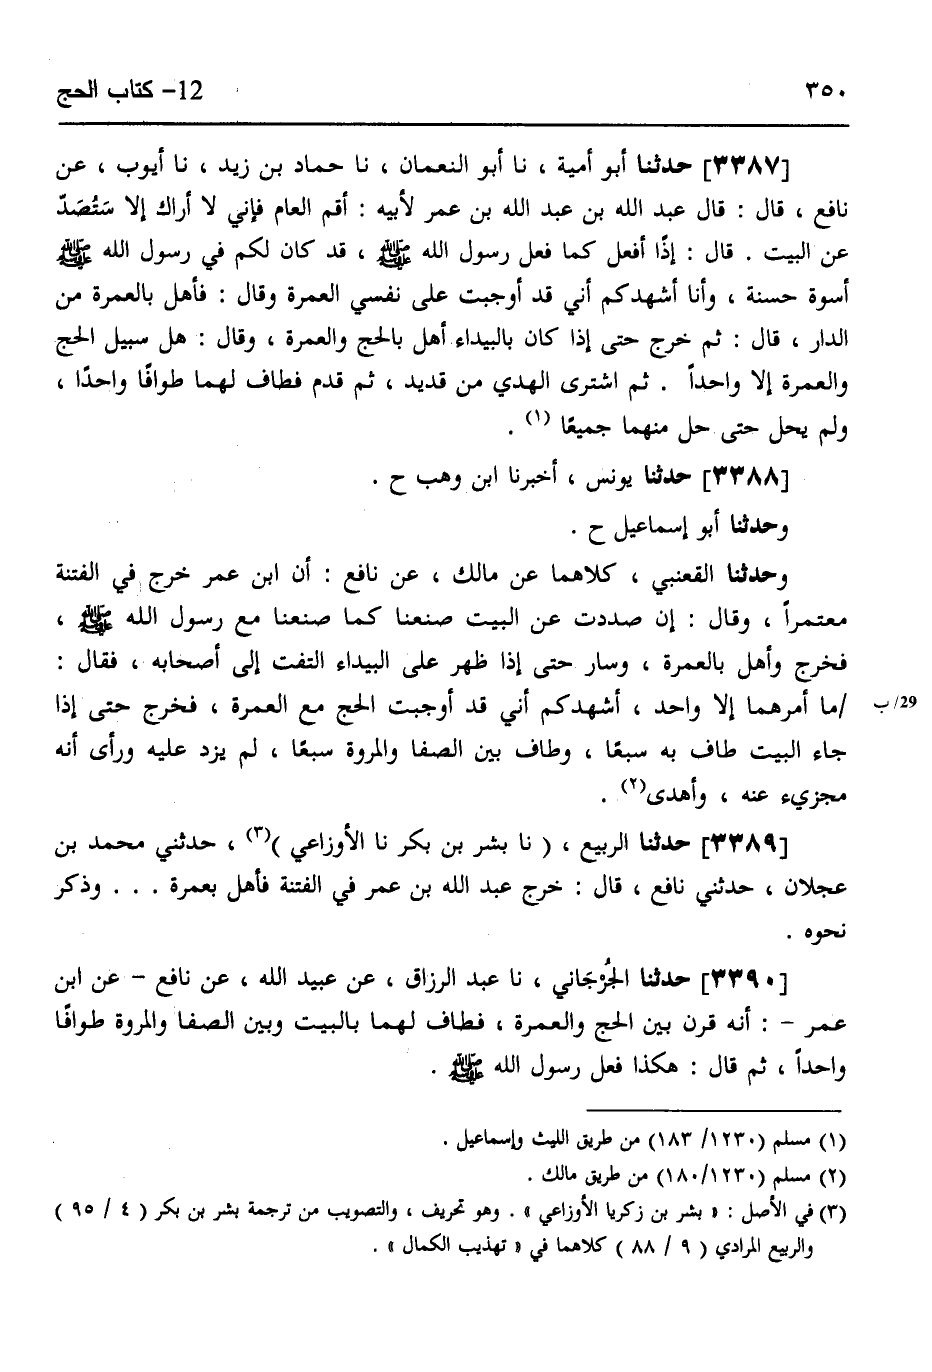 ٣٥٠ 12- كتاب الحج
[٣٣٨٧] حدثنا أبو أمية ، نا أبو النعمان ، نا حماد بن زيد ، نا أيوب ، عن
نافع ، قال : قال عبد الله بن عبد الله بن عمر لأبيه : أقم العام فإني لا أراك إلا سَتُصَدّ
عن البيت . قال : إذًا أفعل كما فعل رسول الله ﷺ ، قد كان لكم في رسول الله ﷺ
أسوة حسنة ، وأنا أشهدكم أني قد أوجبت على نفسي العمرة وقال : فأهل بالعمرة من
الدار ، قال : ثم خرج حتى إذا كان بالبيداء أهل بالحج والعمرة ، وقال : هل سبيل الحج
والعمرة إلا واحداً . ثم اشترى الهدي من قديد ، ثم قدم فطاف لهما طوافًا واحدًا ،
ولم يحل حتى حل منهما جميعًا (١) .
[٣٣٨٨] حدثنا يونس ، أخبرنا ابن وهب ح .
وحدثنا أبو إسماعيل ح .
وحدثنا القعنبي ، كلاهما عن مالك ، عن نافع : أن ابن عمر خرج في الفتنة
معتمراً ، وقال : إن صددت عن البيت صنعنا كما صنعنا مع رسول الله ﷺ ،
فخرج وأهل بالعمرة ، وسار حتى إذا ظهر على البيداء التفت إلى أصحابه ، فقال :
/ما أمرهما إلا واحد ، أشهدكم أني قد أوجبت الحج مع العمرة ، فخرج حتى إذا
29/ب
جاء البيت طاف به سبعًا ، وطاف بين الصفا والمروة سبعًا ، لم يزد عليه ورأى أنه
مجزيء عنه ، وأهدى(٢) .
[٣٣٨٩] حدثنا الربيع ، ( نا بشر بن بكر نا الأوزاعي )(٣) ، حدثني محمد بن
عجلان ، حدثني نافع ، قال : خرج عبد الله بن عمر في الفتنة فأهل بعمرة . . . وذكر
نحوه .
[٣٣٩٠] حدثنا الجُرْجَاني ، نا عبد الرزاق ، عن عبيد الله ، عن نافع – عن ابن
عمر – : أنه قرن بين الحج والعمرة ، فطاف لهما بالبيت وبين الصفا والمروة طوافًا
واحداً ، ثم قال : هكذا فعل رسول الله ﷺ .
(١) مسلم (١٢٣٠/ ١٨٣) من طريق الليث وإسماعيل .
(٢) مسلم (١٢٣٠/١٨٠) من طريق مالك .
(٣) في الأصل : « بشر بن زكريا الأوزاعي » . وهو تحريف ، والتصويب من ترجمة بشر بن بكر ( ٤ / ٩٥ )
والربيع المرادي ( ٩ / ٨٨ ) كلاهما في « تهذيب الكمال » .